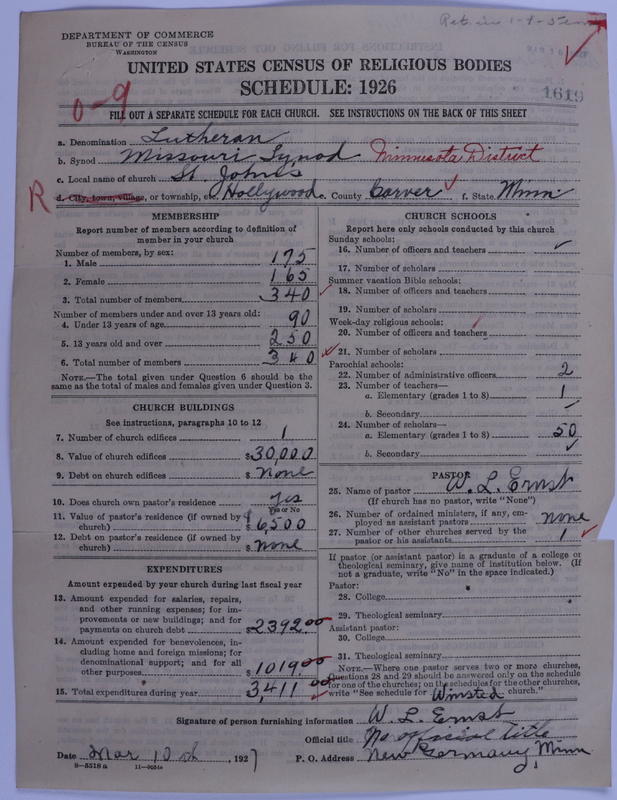 DEPARTMENT OF COMMERCE
BUREAU OF THE CENSUS
WASHINGTON
UNITED STATES CENSUS OF RELIGIOUS BODIES
SCHEDULE: 1926
1619
0-9
FILL OUT A SEPARATE SCHEDULE FOR EACH CHURCH. SEE INSTRUCTIONS ON THE BACK OF THIS SHEET
a. Denomination Lutheran
b. Synod Missouri Synod Minnesota District
c. Local name of church St. Johns
R
d. City, town, village, or township, etc. Hollywood e. County Carver f. State Minn
MEMBERSHIP
Report number of members according to definition of member in your church
Number of members, by sex:
1. Male 175
2. Female 165
3. Total number of members 340
Number of members under and over 13 years old:
4. Under 13 years of age 90
5. 13 years old and over 250
6. Total number of members 340
NOTE.—The total given under Question 6 should be
same as the total of males and females given under Question 3.
CHURCH BUILDINGS
See instructions, paragraphs 10 to 12
7. Number of church edifices 1
8. Value of church edifices $30,000
9. Debt on church edifices $ None
10. Does church own pastor's residence Yes
Yes or No
11. Value of pastor's residence (if owned by
church) $6,500
12. Debt on pastor's residence (if owned by
church) $ None
EXPENDITURES
Amount expended by your church during last fiscal year
13. Amount expended for salaries, repairs,
and other running expenses; for im-
provements or new buildings; and for
payments on church debt $2392.00
14. Amount expended for benevolences, in-
cluding home and foreign missions; for
denominational support; and for all
other purposes $1019.00
15. Total expenditures during year 3,411.00
CHURCH SCHOOLS
Report here only schools conducted by this church
Sunday schools:
16. Number of officers and teachers
17. Number of scholars
Summer vacation Bible schools:
18. Number of officers and teachers
19. Number of scholars
Week-day religious schools:
20. Number of officers and teachers
21. Number of scholars
Parochial schools:
22. Number of administrative officers 2
23. Number of teachers—
a. Elementary (grades 1 to 8) 1
b. Secondary
24. Number of scholars—
a. Elementary (grades 1 to 8) 50
b. Secondary
PASTOR
25. Name of pastor W. L. Ernst
(If church has no pastor, write "None")
26. Number of ordained ministers, if any, em-
ployed as assistant pastors none
27. Number of other churches served by the
pastor or his assistants 1
If pastor (or assistant pastor) is a graduate of a college or
theological seminary, give name of institution below. (If
not a graduate, write "No" in the space indicated.)
Pastor:
28. College
29. Theological seminary
Assistant pastor:
30. College
31. Theological seminary
NOTE.—Where one pastor serves two or more churches,
Questions 28 and 29 should be answered only on the schedule
for one of the churches; on the schedules for the other churches,
write "See schedule for Winsted church."
Signature of person furnishing information W. L. Ernst
Official title No official title
Date Mar 10th, 1927 P. O. Address New Germany, Minn
8—5518 a